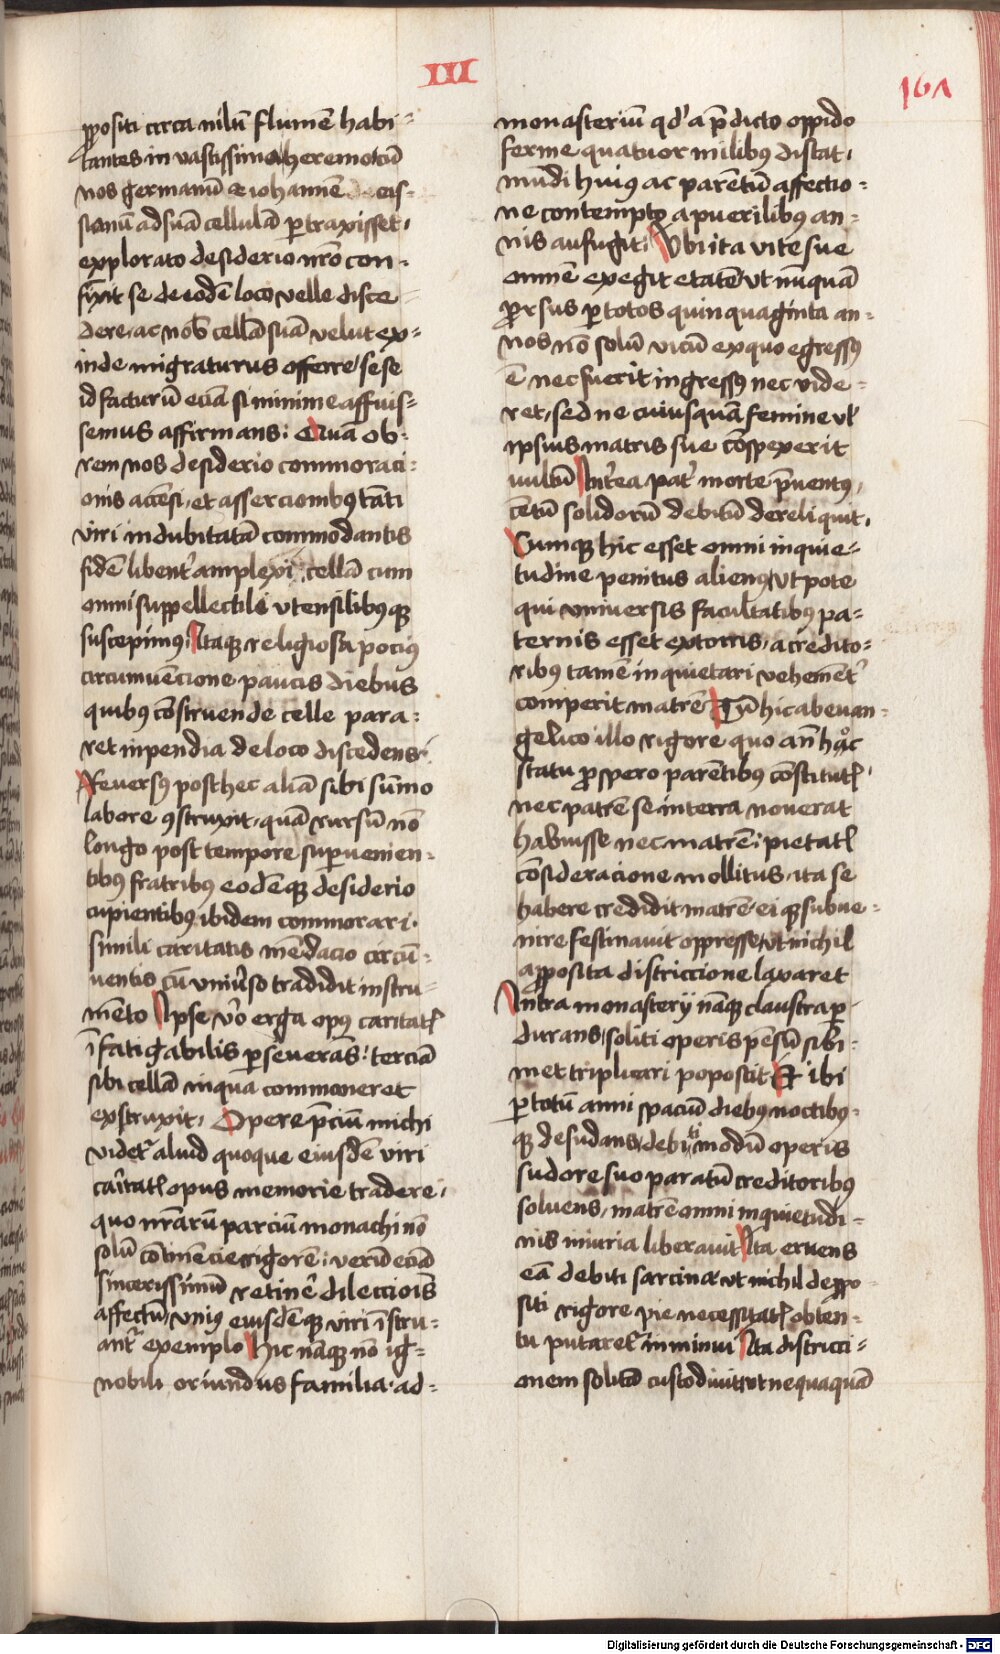 III
161
p̱positi circa nilū flumē habi-
tantes in vastissima heremo cū
nos germanū & iohannē de cis-
sianū ad suā cellulā ꝑtraxisset.
explorato desiderio nr̄o con-
fīxit se de eodē loco velle disce
dere. ac nob̄ cellā suā velut ex-
inde migraturus offerre / sese
id facturū eciā si minime affuis-
semus affirmans: Quā ob-
rem nos desiderio commoraci-
onis accēsi, et assercionibꝰ tāti
viri indubitatā commodantis
fidē libent̾ amplexi, cellā cum
omni suppellectili vtensilibꝰqꝫ
suscepimꝰ. Itaqꝫ religiosa pociꝰ
circumuēcione paucis diebus
quibꝰ cōstruende celle para-
ret inpendia de loco discedens.
Reuersꝰ posthec aliā sibi sūmo
labore ꝯstruxit. quā rursū nō
longo post tempore suꝑuenien-
tibꝰ fratribꝰ eodēqꝫ desiderio
cupientibꝰ ibidem commorari.
simili caritatis mēdacio circū-
uentis cū vniu̾so tradidit instru-
mēto Ipse v̾o erga opꝰ caritatꝭ
īfatigabilis ꝑseuerās: terciā
sibi cellā in qua commoneret
exstruxit. Opere p̄ciū michi
videt᷑ aliud quoque eiusdē viri
caritatꝭ opus memorie tradere.
quo nr̄arū parciū monachi nō
solū cōtinēcie rigorē: verū eciā
sincerissimū retinē dileccīois
affectū, vniꝰ eiusdēqꝫ viri īstru-
ant᷑ exemplo Hic nāqꝫ nō ig-
nobili oriundus familia. ad-
monasteriū qd̾ a p̄dicto oppido
ferme quatuor milibꝰ distat.
mūdi huiꝰ ac parētū affectio-
ne contempto a puerilibꝰ an-
nis aufugit: Vbi ita vite sue
omnē exegit etatē vt nūquā
ꝓrsus ꝑ totos quinquaginta an-
nos nō solū vicū ex quo egressꝰ
ē nec fuerit ingressꝰ nec vide-
ret, sed ne cuiusquā femine vl̄
ipsius matris sue cōspexerit
uultū Int̾ea pat̾ morte p̄uentꝰ,
cētū solidorū debitū dereliquit.
Cumqꝫ hic esset omni inquie-
tudine penitus alienꝰ, vt pote
qui vniuersis facultatibꝰ pa-
ternis esset extorris, a credito-
ribꝰ tamē inquietari vehemēt̾
comperit matrē Tū hic ab euan-
gelico illo rigore quo an̄ hac
statu ꝓspero parētibꝰ cōstitutꝭ.
nec patrē se in terra nouerat
habuisse nec matrē: pietatꝭ
cōsideracione mollitus. ita se
habere credidit matrē. eiqꝫ subue-
nire festinauit oppresse, vt nichil
a ꝓposita districcione laxaret
Intra monasterij nāqꝫ claustra ꝑ-
durans, soliti operis pēsū sibi-
met triplicari poposcit Et ibi
ꝑ totū anni spaciū diebꝰ noctibꝰ-
qꝫ desudans, debiti modū operis
sudore suo paratū creditoribꝰ
soluens, matrē omni inquietudi-
nis iniuria liberauit Ita eruens
eā debiti sarcina vt nichil de ꝓpo-
siti rigore pie necessitatꝭ obten-
tu putaret̾ inminui Ita districci-
onem solitā custodiuit vt nequaquā
Digitalisierung gefördert durch die Deutsche Forschungsgemeinschaft - DFG